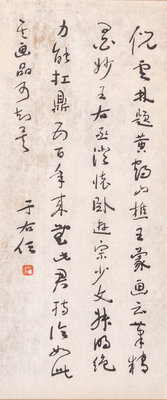 倪雲林題黃鶴山樵王蒙画云筆精
墨妙王右軍澄懷卧遊宗少文叔明絕
力能扛鼎五百年來無此君持論如此
其画品可知矣
于右任